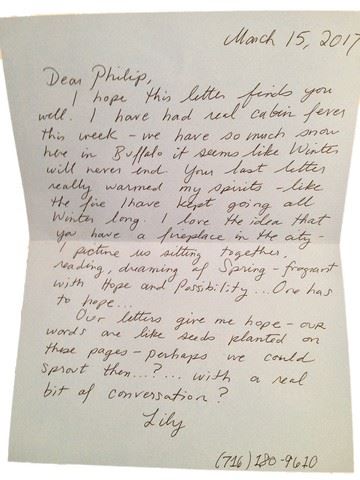 March 15, 2017
Dear Philip,
I hope this letter finds you
well. I have had real cabin fever
this week - we have so much snow
here in Buffalo it seems like Winter
will never end. Your last letter
really warmed my spirits - like
the fire I have kept going all
Winter long. I love the idea that
you have a fireplace in the city -
I picture us sitting together,
reading, dreaming of Spring - fragrant
with Hope and Possibility ... One has
to hope...
Our letters give me hope - our
words are like seeds planted on
these pages - perhaps we could
sprout them...?... with a real
bit of conversation?
Lily
(716) 180-9610